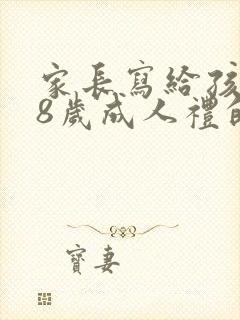 家长寫給孩
8歲成人禮的
寶妻